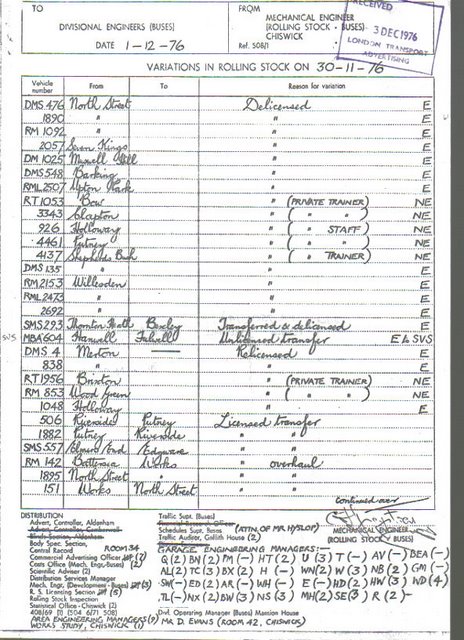 TO
DIVISIONAL ENGINEERS (BUSES)
DATE 1-12-76
FROM
MECHANICAL ENGINEER
(ROLLING STOCK - BUSES)
CHISWICK
Ref. 508/1
RECEIVED
3 DEC 1976
LONDON TRANSPORT
ADVERTISING
VARIATIONS IN ROLLING STOCK ON 30-11-76
Vehicle number From To Reason for variation
DMS 476 North Street Delicensed E
1890 " " E
RM 1092 " " E
2057 Seven Kings " E
DM 1025 Muswell Hill " E
DMS 548 Barking " E
RML 2507 Upton Park " E
RT 1053 Bow " (PRIVATE TRAINER) NE
3343 Clapton " ( " " ) NE
926 Holloway " ( " STAFF ) NE
4461 Putney " ( " " ) NE
4137 Shepherds Bush " ( " TRAINER) NE
DMS 135 " " E
RM 2153 Willesden " E
RML 2473 " " E
2692 " " E
SMS 293 Thornton Heath Bexley Transferred & delicensed E
SVS MBA 604 Hanwell Fulwell Unlicensed transfer E & SVS
DMS 4 Merton — Relicensed E
838 " " E
RT 1956 Brixton " (PRIVATE TRAINER) NE
RM 853 Wood Green " ( " " ) NE
1048 Holloway " E
506 Riverside Putney Licensed transfer
1882 Putney Riverside " "
SMS 557 Elmers End Edgware " "
RM 142 Battersea Works " overhaul
1895 North Street " " "
151 Works North Street " "
continued over
DISTRIBUTION
Advert. Controller, Aldenham
Body Spec. Section,
Central Record ROOM 34
Commercial Advertising Officer (7)
Costs Office (Mech. Engr.-Buses) (2)
Scientific Adviser (2)
Distribution Services Manager
Mech. Engr. (Development - Buses) (3)
R. S. Licensing Section (5)
Rolling Stock Inspection
Statistical Office - Chiswick (2)
AREA ENGINEERING MANAGERS (9)
WORKS STUDY, CHISWICK (1)
Traffic Supt. (Buses)
Financial Research Officer
Schedules Supt. Buses (ATTN OF MR HYSLOP)
Traffic Auditor, Griffith House (2)
MECHANICAL ENGINEER
(ROLLING STOCK BUSES)
GARAGE ENGINEERING MANAGERS:-
Q(2) BN(2) PM(-) HT(2) U(3) T(-) AV(-) BEA(-)
AL(2) TC(3) BX(2) H(-) WN(2) W(3) NB(2) GM(-)
SW(-) ED(2) AR(-) WH(-) E(-) HD(2) HW(3) WD(4)
TL(-) NX(2) BW(3) NS(3) MH(2) SE(3) R(2)-
Divl. Operating Manager (Buses) Mansion House
MR D. EVANS (ROOM 42, CHISWICK)